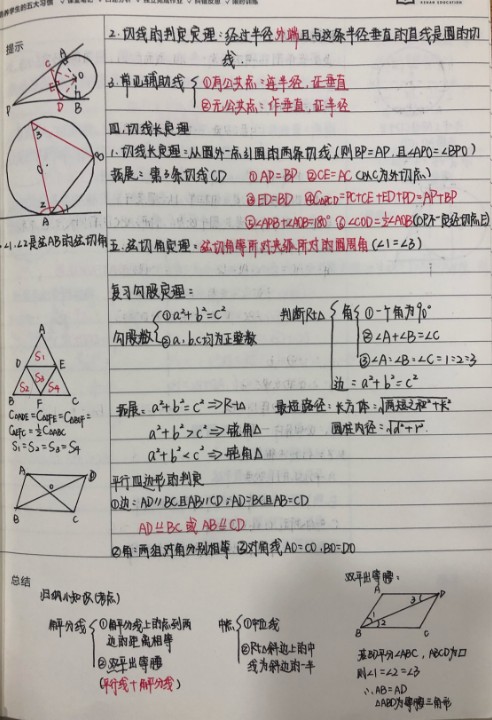 提示
2.切线的判定定理:经过半径外端且与这条半径垂直的直线是圆的切
线.
3.常见辅助线 ①有公共点:连半径,证垂直
②无公共点:作垂直,证半径
四.切线长定理
1.切线长定理:从圆外一点引圆的两条切线,(则BP=AP,且∠APO=∠BPO)
拓展:第3条切线CD ①AP=BP ②CE=AC(A,C为外切点)
③ED=BD ④C△PCD=PC+CE+ED+PD=AP+BP
⑤∠APB+∠AOB=180° ⑥∠COD=½∠AOB
∠1,∠2是弦AB的弦切角
五.弦切角定理:弦切角等于所对夹弧所对的圆周角(∠1=∠3)
复习勾股定理:
勾股数 ①a²+b²=c²
②a,b,c均为正整数
判断Rt△ 角 ①一个角为90°
②∠A+∠B=∠C
③∠A:∠B:∠C=1:2:3
边:a²+b²=c²
A
D S₁ E
S₂ S₃ S₄
B F C
C△ADE=C△DFE=C△DBF=
C△EFC=½C△ABC
S₁=S₂=S₃=S₄
拓展:a²+b²=c²⇒Rt△
a²+b²>c²⇒锐角△
a²+b²<c²⇒钝角△
最短路径:长方体:
圆柱内径:
A D
O
B C
平行四边形的判定
①边:AD∥BC且AB∥CD;AD=BC且AB=CD
AD⫽BC或AB⫽CD
②角:两组对角分别相等 ③对角线AO=CO,BO=DO
总结
归纳小知识(考点)
角平分线 ①角平分线上的点到两
边的距离相等
②双平出等腰
(平行线+角平分线)
中点 ①中位线
②Rt△斜边上的中
线为斜边的一半
双平出等腰:
A D
3
1 2
B C
若BD平分∠ABC,ABCD为▱
则∠1=∠2=∠3
∴AB=AD
△ABD为等腰三角形